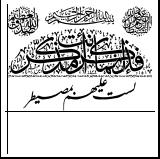 بسم الله الرحمن الرحيم
فذكر إنما أنت مذكر
لست عليهم بمصيطر